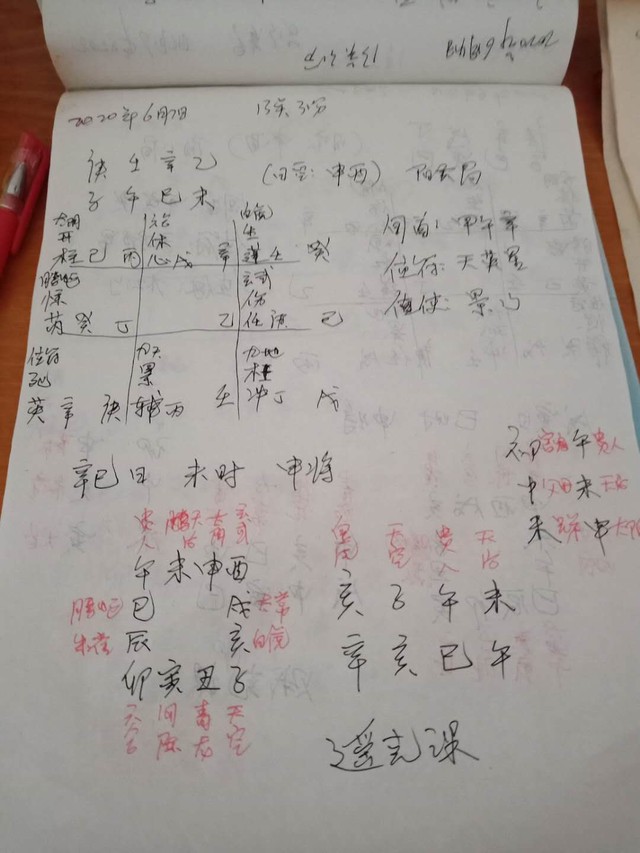 2020年6月7日 13点
庚 壬 辛 乙
子 午 巳 未
(日空: 申酉) 阳六局
旬首: 甲午辛
值符: 天英星
值使: 景门
开 休 生
柱 己 丙 心 戊 辛 蓬 壬 癸
螣蛇 玄武
惊 伤
芮 癸 丁 乙 任 庚 己
值符 九天 九地
死 景 杜
英 辛 庚 辅 丙 壬 冲 丁 戊
辛巳日 未时 申将
初 官鬼 午 贵人
中 父母 未 天后
末 申
贵人 天后 玄武
午 未 申 酉
螣蛇 巳 戌 太常
朱雀 辰 亥 白虎
卯 寅 丑 子
六合 勾陈 青龙 天空
白虎 天空 贵人 天后
亥 子 午 未
辛 亥 巳 午
遥克课